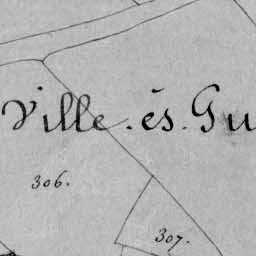 Ville.ès.Gu
306.
307.